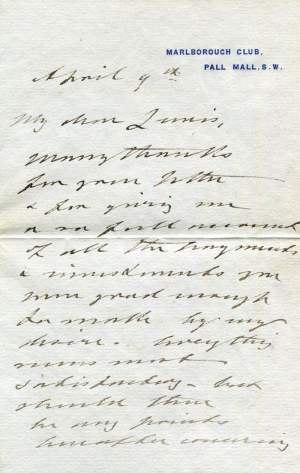 MARLBOROUGH CLUB,
PALL MALL. S.W.
April 9th
My dear Lewis,
many thanks
for your letter
& for giving me
a so full account
of all the payments
& investments you
were good enough
to make by my
desire. Everything
seems most
satisfactory - but
should there
be any points
hereafter concerning